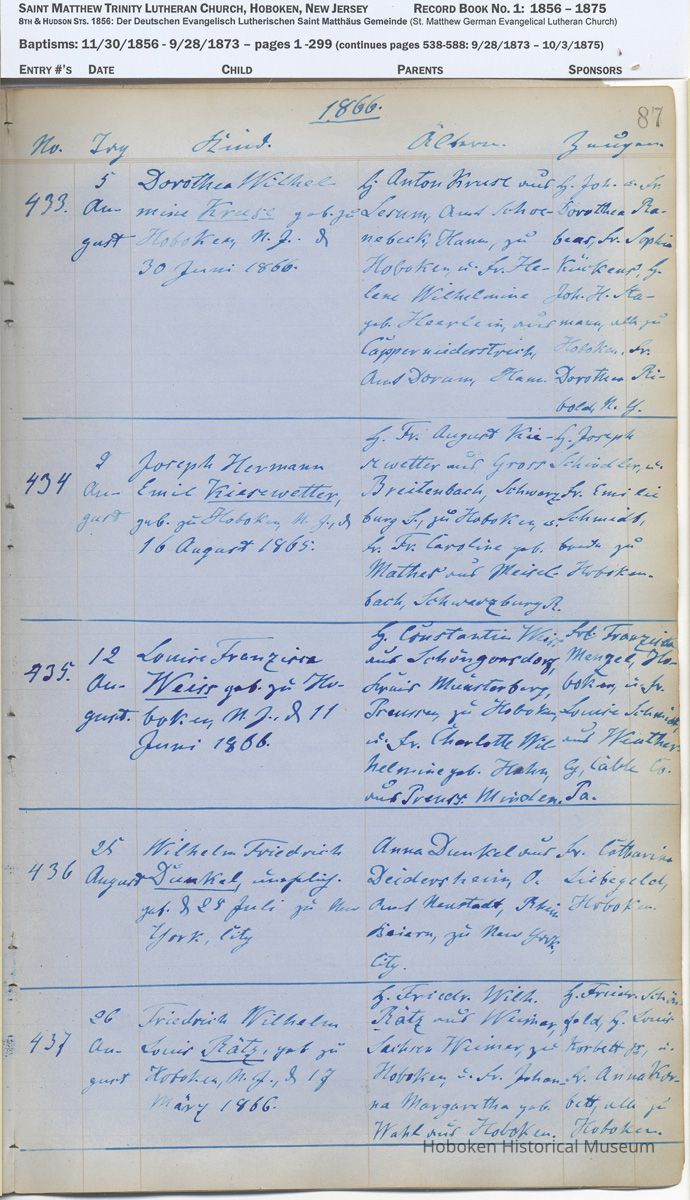 SAINT MATTHEW TRINITY LUTHERAN CHURCH, HOBOKEN, NEW JERSEY RECORD BOOK NO. 1: 1856 – 1875
8TH & HUDSON STS. 1856: Der Deutschen Evangelisch Lutherischen Saint Matthäus Gemeinde (St. Matthew German Evangelical Lutheran Church)
Baptisms: 11/30/1856 - 9/28/1873 – pages 1 -299 (continues pages 538-588: 9/28/1873 – 10/3/1875)
ENTRY #'S DATE CHILD PARENTS SPONSORS
1866. 87
No. Tag Kind. Ältern. Zeugen.
433.
5
Au-
gust
Dorothea Wilhel-
mine Kruse geb. zu
Hoboken, N. J., d
30 Juni 1866.
H. Anton Kruse aus
Lesum, Amt Schoe-
nebeck, Hann., zu
Hoboken, u. Fr. He-
lene Wilhelmine
geb. Heerlein, aus
Cappernniederstrich,
Amt Dorum, Hann.
H. Joh. u. Fr.
Dorothea Ra-
be, Fr. Sophia
Kückens, H.
Joh. H. Ha-
mann, alle zu
Hoboken, Fr.
Dorothea Ri-
bold, N. Y.
434
9
Au-
gust
Joseph Hermann
Emil Kiesewetter,
geb. zu Hoboken, N. J., d
16 August 1865.
H. Fr. August Kie-
sewetter aus Gross
Breitenbach, Schwarz-
burg S., zu Hoboken, u.
Fr. Fr. Caroline geb.
Mathes aus Meisel-
bach, Schwarzburg R.
H. Joseph
Schindler, u.
Fr. Emilie
Schmidt,
beide zu
Hoboken.
435.
12
Au-
gust.
Louise Franzisca
Weiss geb. zu Ho-
boken, N. J., d 11
Juni 1866.
H. Constantin Weiss
aus Schöngorsdorf,
Kreis Münsterberg,
Preussen, zu Hoboken,
u. Fr. Charlotte Wil-
helmine geb. Hahn,
aus Preuss. Minden.
Frl. Franziska
Menzel, Ho-
boken, u. Fr.
Louise Schmidt,
aus Weather-
ly, Cable Co.
Pa.
436
25
August
Wilhelm Friedrich
Dunkel, unehlich.
geb. d 28 Juli zu New
York, City
Anna Dunkel aus
Deidersheim, O.
Amt Neustadt, Rhein
Baiern, zu New York,
City.
Fr. Catharina
Liebegeld,
Hoboken.
437
26
Au-
gust
Friedrich Wilhelm
Louis Rätz, geb. zu
Hoboken, N. J., d 17
März 1866.
H. Friedr. Wilh.
Rätz aus Weimar,
Sachsen Weimar, zu
Hoboken, u. Fr. Johan-
na Margaretha geb.
Wahl aus Hoboken.
H. Friedr. Schön-
feld, H. Louis
Korbett, u.
Fr. Anna Kor-
bett, alle zu
Hoboken.
Hoboken Historical Museum